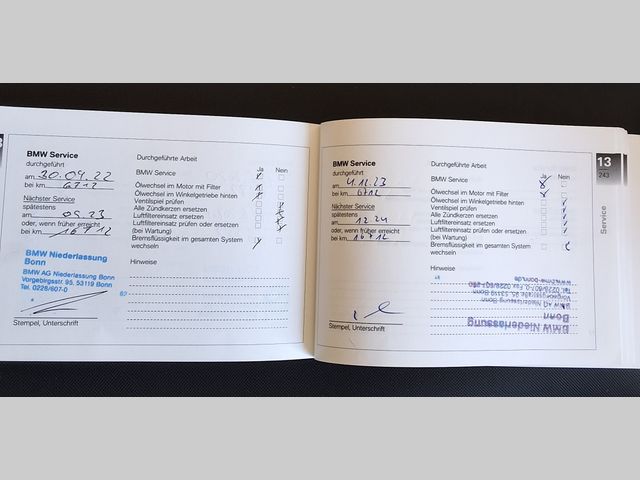 BMW Service
durchgeführt
am 30.09.22
bei km 6712
Nächster Service
spätestens
am 09.23
oder, wenn früher erreicht
bei km 16712
BMW Niederlassung
Bonn
BMW AG Niederlassung Bonn
Vorgebirgsstr. 95, 53119 Bonn
Tel. 0228/607-0
Stempel, Unterschrift
Durchgeführte Arbeit
Ja Nein
BMW Service
Ölwechsel im Motor mit Filter
Ölwechsel im Winkelgetriebe hinten
Ventilspiel prüfen
Alle Zündkerzen ersetzen
Luftfiltereinsatz ersetzen
Luftfiltereinsatz prüfen oder ersetzen
(bei Wartung)
Bremsflüssigkeit im gesamten System
wechseln
Hinweise
BMW Service
durchgeführt
am 4.12.23
bei km 6712
Nächster Service
spätestens
am 12.24
oder, wenn früher erreicht
bei km 16712
Stempel, Unterschrift
Durchgeführte Arbeit
Ja Nein
BMW Service
Ölwechsel im Motor mit Filter
Ölwechsel im Winkelgetriebe hinten
Ventilspiel prüfen
Alle Zündkerzen ersetzen
Luftfiltereinsatz ersetzen
Luftfiltereinsatz prüfen oder ersetzen
(bei Wartung)
Bremsflüssigkeit im gesamten System
wechseln
Hinweise
BMW Niederlassung
Bonn
BMW AG Niederlassung Bonn
Vorgebirgsstr. 95, 53119 Bonn
www.bmw-bonn.de
13
243
Service